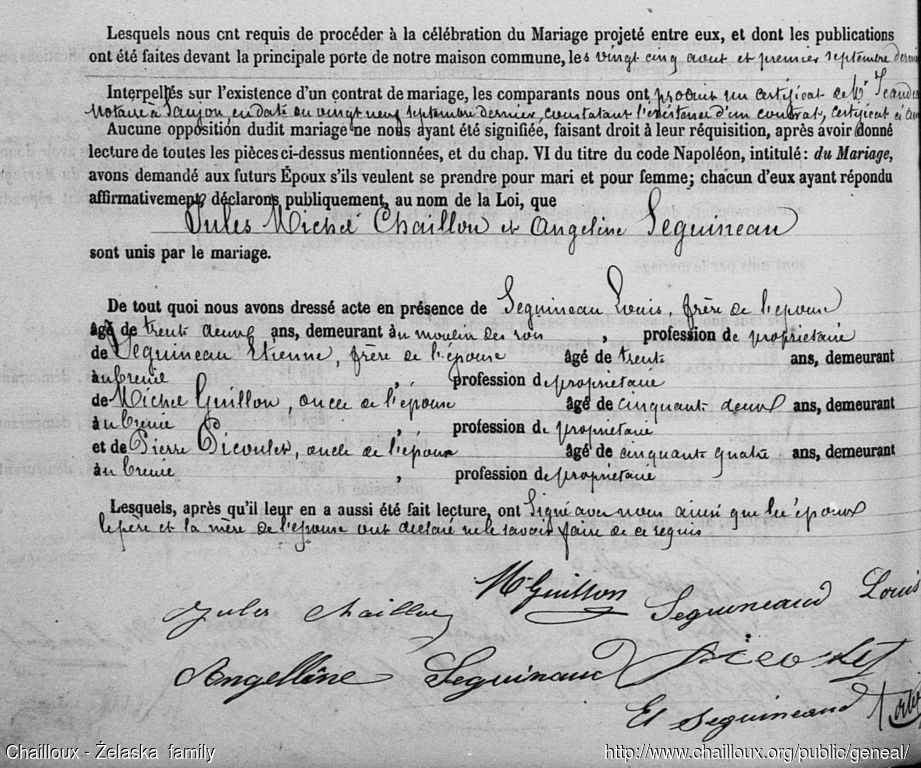 Lesquels nous cnt requis de procéder à la célébration du Mariage projeté entre eux, et dont les publications
ont été faites devant la principale porte de notre maison commune, les vingt cinq aout et premier septembre
Interpellés sur l'existence d'un contrat de mariage, les comparants nous ont produit un certificat de Mr
Notaire à Saujon en date du vingt neuf septembre dernier, constatant l'existence d'un contrat, certificat ci
Aucune opposition dudit mariage ne nous ayant été signifiée, faisant droit à leur réquisition, après avoir donné
lecture de toutes les pièces ci-dessus mentionnées, et du chap. VI du titre du code Napoléon, intitulé : du Mariage,
avons demandé aux futurs Époux s'ils veulent se prendre pour mari et pour femme; chacun d'eux ayant répondu
affirmativement, déclarons publiquement, au nom de la Loi, que
Jules Michel Chaillou et Angeline Seguineau
sont unis par le mariage.
De tout quoi nous avons dressé acte en présence de Seguineau Louis, frère de l'épouse
âgé de trente deux ans, demeurant au moulin des , profession de propriétaire
de Seguineau Etienne, frère de l'épouse âgé de trente ans, demeurant
au Breuil , profession de propriétaire
de Michel Guillon, oncle de l'épouse âgé de cinquante deux ans, demeurant
au Breuil , profession de propriétaire
et de Pierre Picoulet, oncle de l'épouse âgé de cinquante quatre ans, demeurant
au Breuil , profession de propriétaire
Lesquels, après qu'il leur en a aussi été fait lecture, ont Signé avec nous ainsi que les époux
le père et la mère de l'épouse ont déclaré ne le savoir faire de ce requis
Jules Chailloux Mel Guillon Seguineaud Louis
Angelline Seguinaud
Et Seguineaud
Chailloux - Żelaska family http://www.chailloux.org/public/geneal/